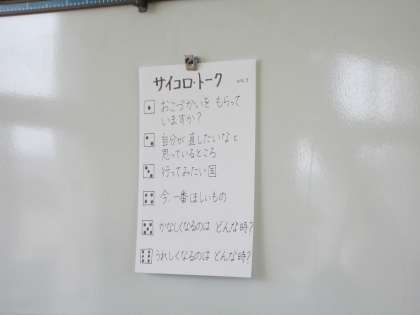 サイコロ・トーク
おこづかいを もらって
いますか?
自分が 直したいなと
思っているところ
行ってみたい国
今、一番ほしいもの
かなしくなるのは どんな時?
うれしくなるのは どんな時?